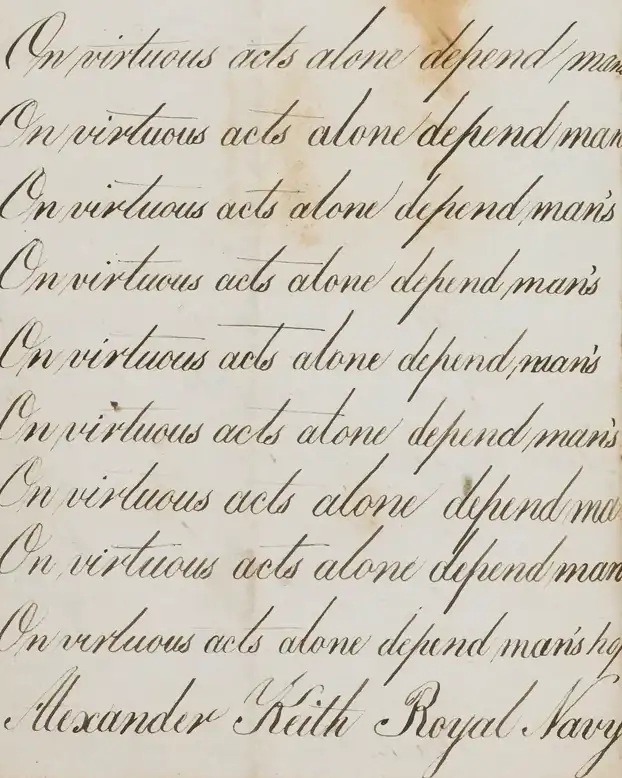 On virtuous acts alone depend mans
On virtuous acts alone depend man
On virtuous acts alone depend man's
On virtuous acts alone depend man's
On virtuous acts alone depend man's
On virtuous acts alone depend man's
On virtuous acts alone depend ma
On virtuous acts alone depend man
On virtuous acts alone depend man's hop
Alexander Keith Royal Navy